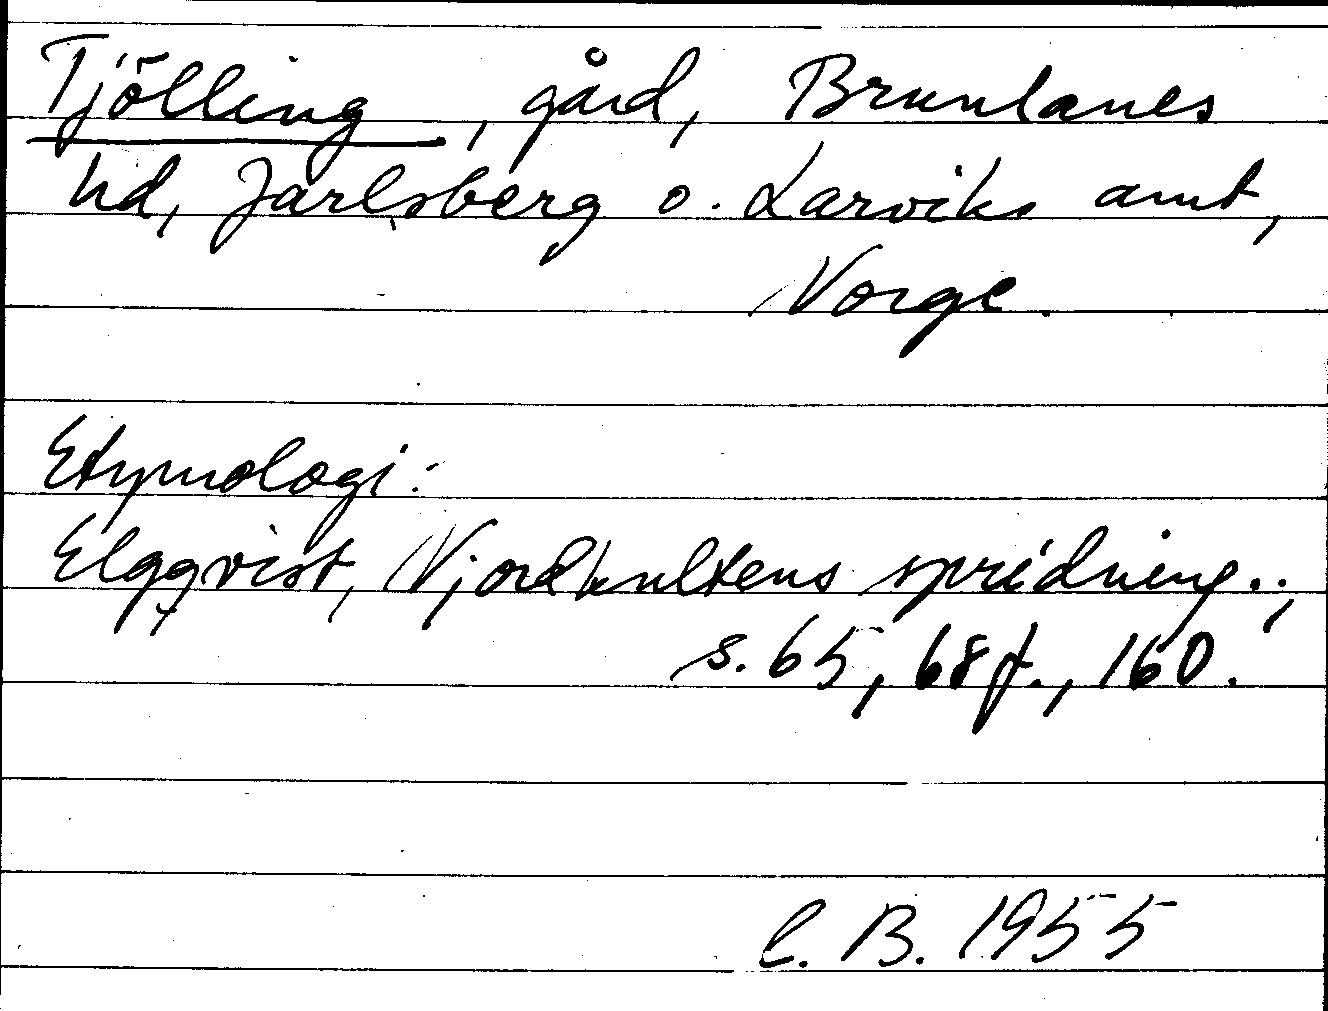 Tjölling, gård, Brunlanes
hd, Jarlsberg o. Larviks amt,
Norge.
Etymologi:
Elgqvist, Njordkultens spridning..,
s. 65, 68f., 160.
C. B. 1955